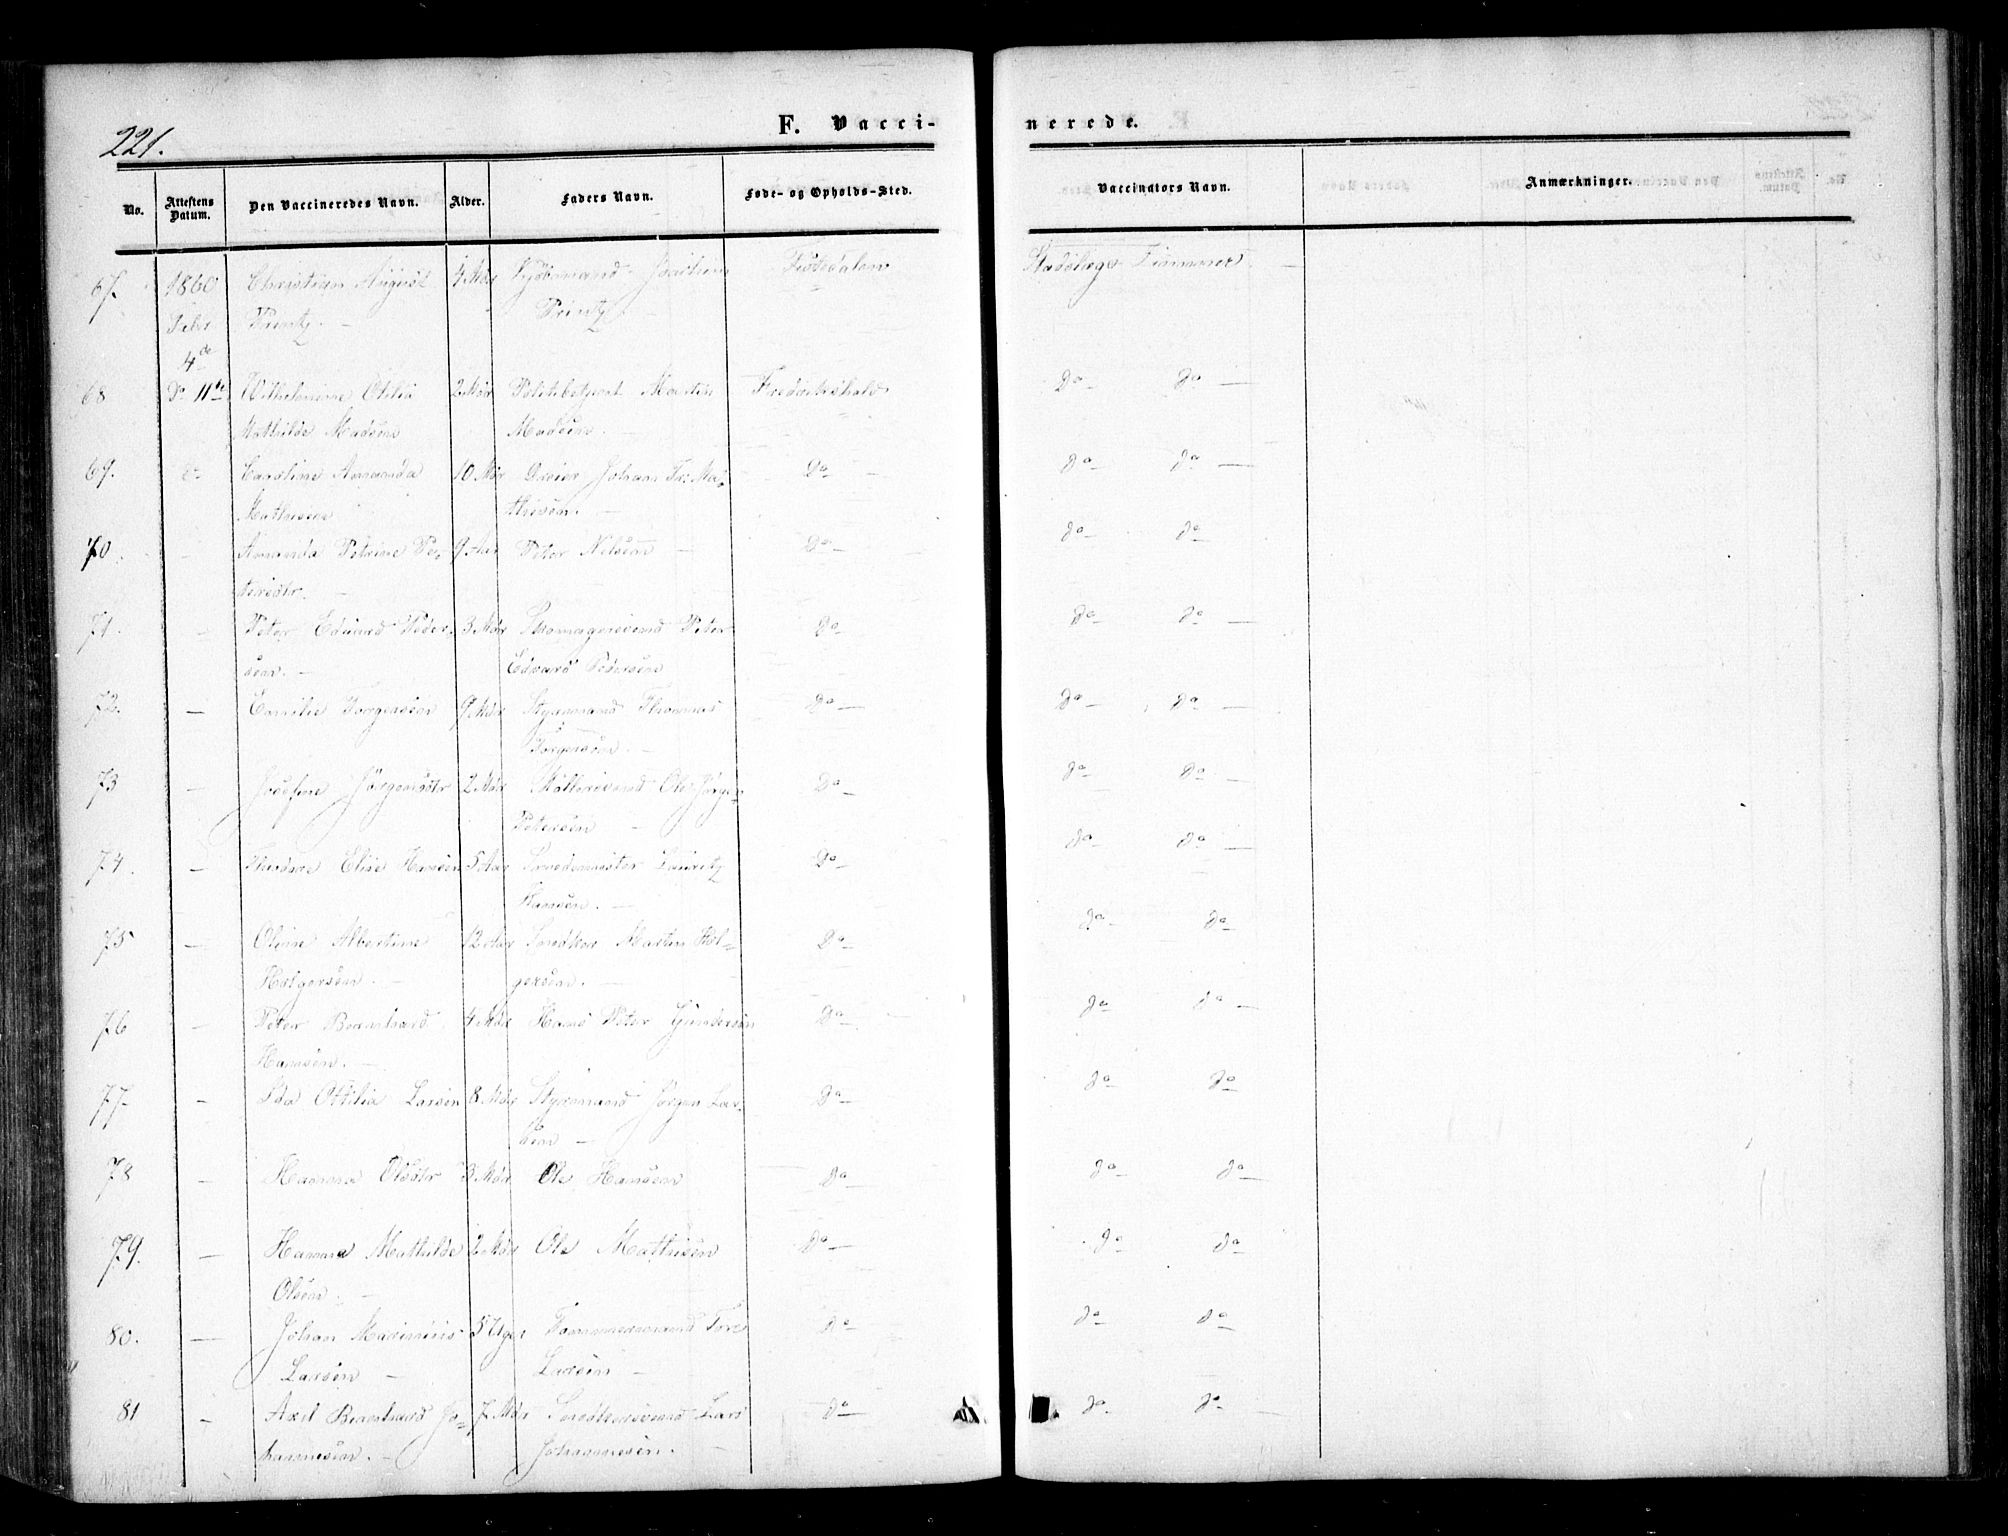 221.
F. Vacci-
nerede.
No.
Attestens Datum.
Den Vaccineredes Navn.
Alder.
Faders Navn.
Føde- og Opholds-Sted.
Vaccinators Navn.
Anmærkninger.
67. 1860 Christian August 4 Mdr Kjöbmand Tistedalen Stadslæge Timmer —
Febr Printz. — Printz. —
4de
68 Do 11te Wilhelmine Otilia 2 Mdr Politibetjent Martin Fredrikshald Do do —
Mathilde Madsen Madsen. —
69. Caroline Amanda 10 Mdr Dreier Johan Fr: Ma- Do — do do —
Mathisen thisen. —
70. — Amanda Petrine Pe- 9 Aar Peter Nilsen — Do — do do
tersdtr. —
71. — Peter Eduard Peder- 3 Mdr Skomagersvend Peter Do do do —
sen. — Edvard Pedersen
72. — Emilie Torgersen 9 Mdr Styrmand Thomas Do — do do —
Torgersen. —
73 — Josefine Jörgensdtr 2 Mdr Möllersvend Ole Jörgen Do do do —
Petersen —
74. — Elise Hansen 5 Aar Smedemester Lauritz Do do do —
Hansen. —
75 — Oline Albertine 12 Aar Snedker Martin Hol- Do do do
Holgersen. — gersen. —
76 — Peter Bernhard 4 Mdr Hans Peter Gundersen Do — do do —
Hansen. —
77 — Ida Ottilia Larsen 8 Mdr Styrmand Jörgen Lar- Do do do
sen —
78 — Hanna Olsdtr 3 Mdr Ole Hansen Do do do
79. — Hanna Mathilde 2 Mdr Ole Mathisen Do — do do
Olsen. —
80. — Johan Marinius 5 Uger Tømmermand Tore Do do do
Larsen — Larsen —
81 — Axel Bernhard Jo- 7 Mdr Snedkersvend Lars Do do do —
hannesen. — Johannesen. —